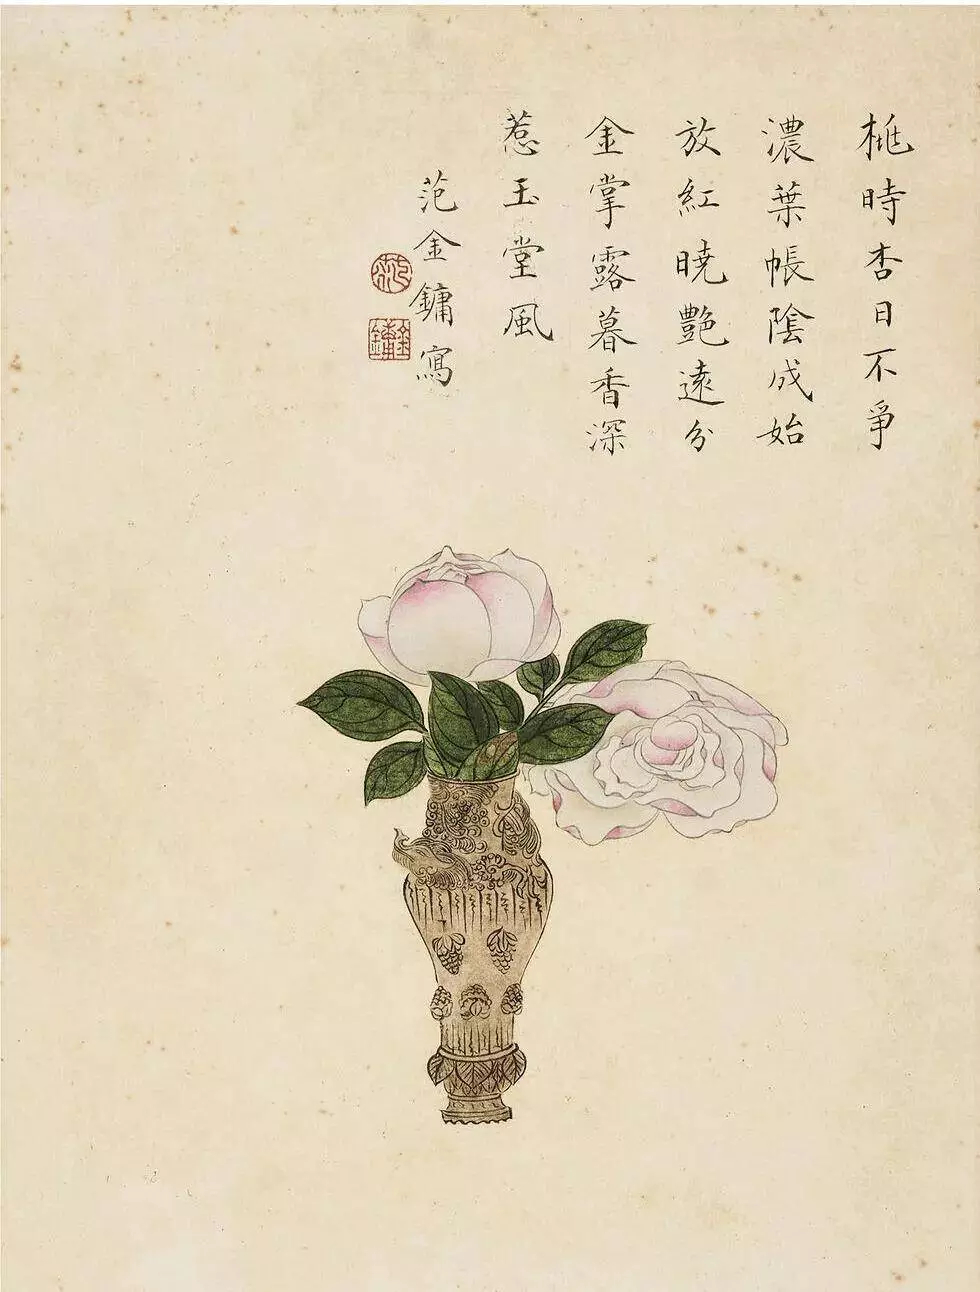 桃時杏日不爭
濃葉帳陰成始
放紅曉艷遠分
金掌露暮香深
惹玉堂風
范金鏞寫
金鏞